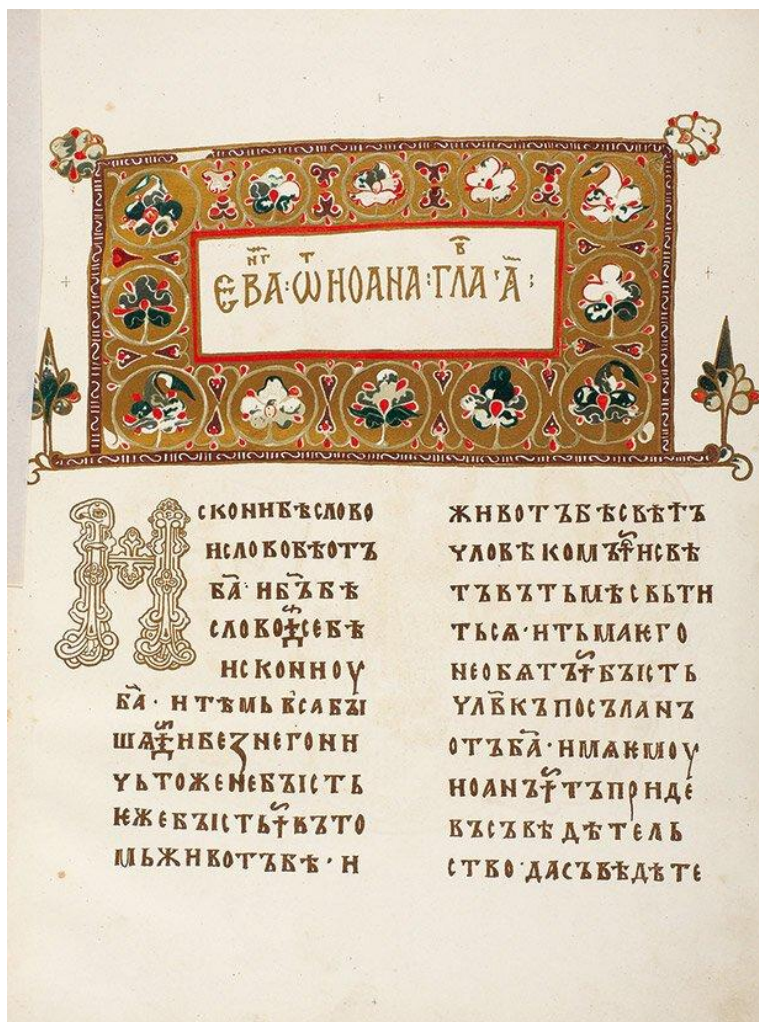 ЄВАⷩⷢ:Ѡⷮ ИОАНА:ГЛАⷡ·А҃:
ИСКОНИБѢСЛОВО
ИСЛОВОБѢОТЪ
Б҃А·ИБ҃ЪБѢ
СЛОВО+СЕБѢ
ИСКОНИОУ
Б҃А·ИТѢМЬВ҄САБЪІ
ШѦ+ИБЕꙀНЕГОНИ
ЧЬТОЖЕНЕБЪІСТЬ
ѤЖЕБЪІСТЬ+ВЪТО
МЬЖИВОТЪБѢ·И
ЖИВОТЪБѢСВѢТЪ
ЧЛОВѢКОМЪ+ИСВѢ
ТЪВЪТЬМѢСВЬТИ
ТЬСѦ·ИТЬМАѤГО
НЕОБѦТЪ+БЪІСТЬ
ЧЛ҃ВКЪПОСЪЛАНЪ
ОТЪБ҃А·ИМѦѤМОУ
ИОАНЪ+ТЪПРИДЕ
ВЪСЪВѢДѢТЕЛЬ
СТВО·ДАСЪВѢДѢТЕ